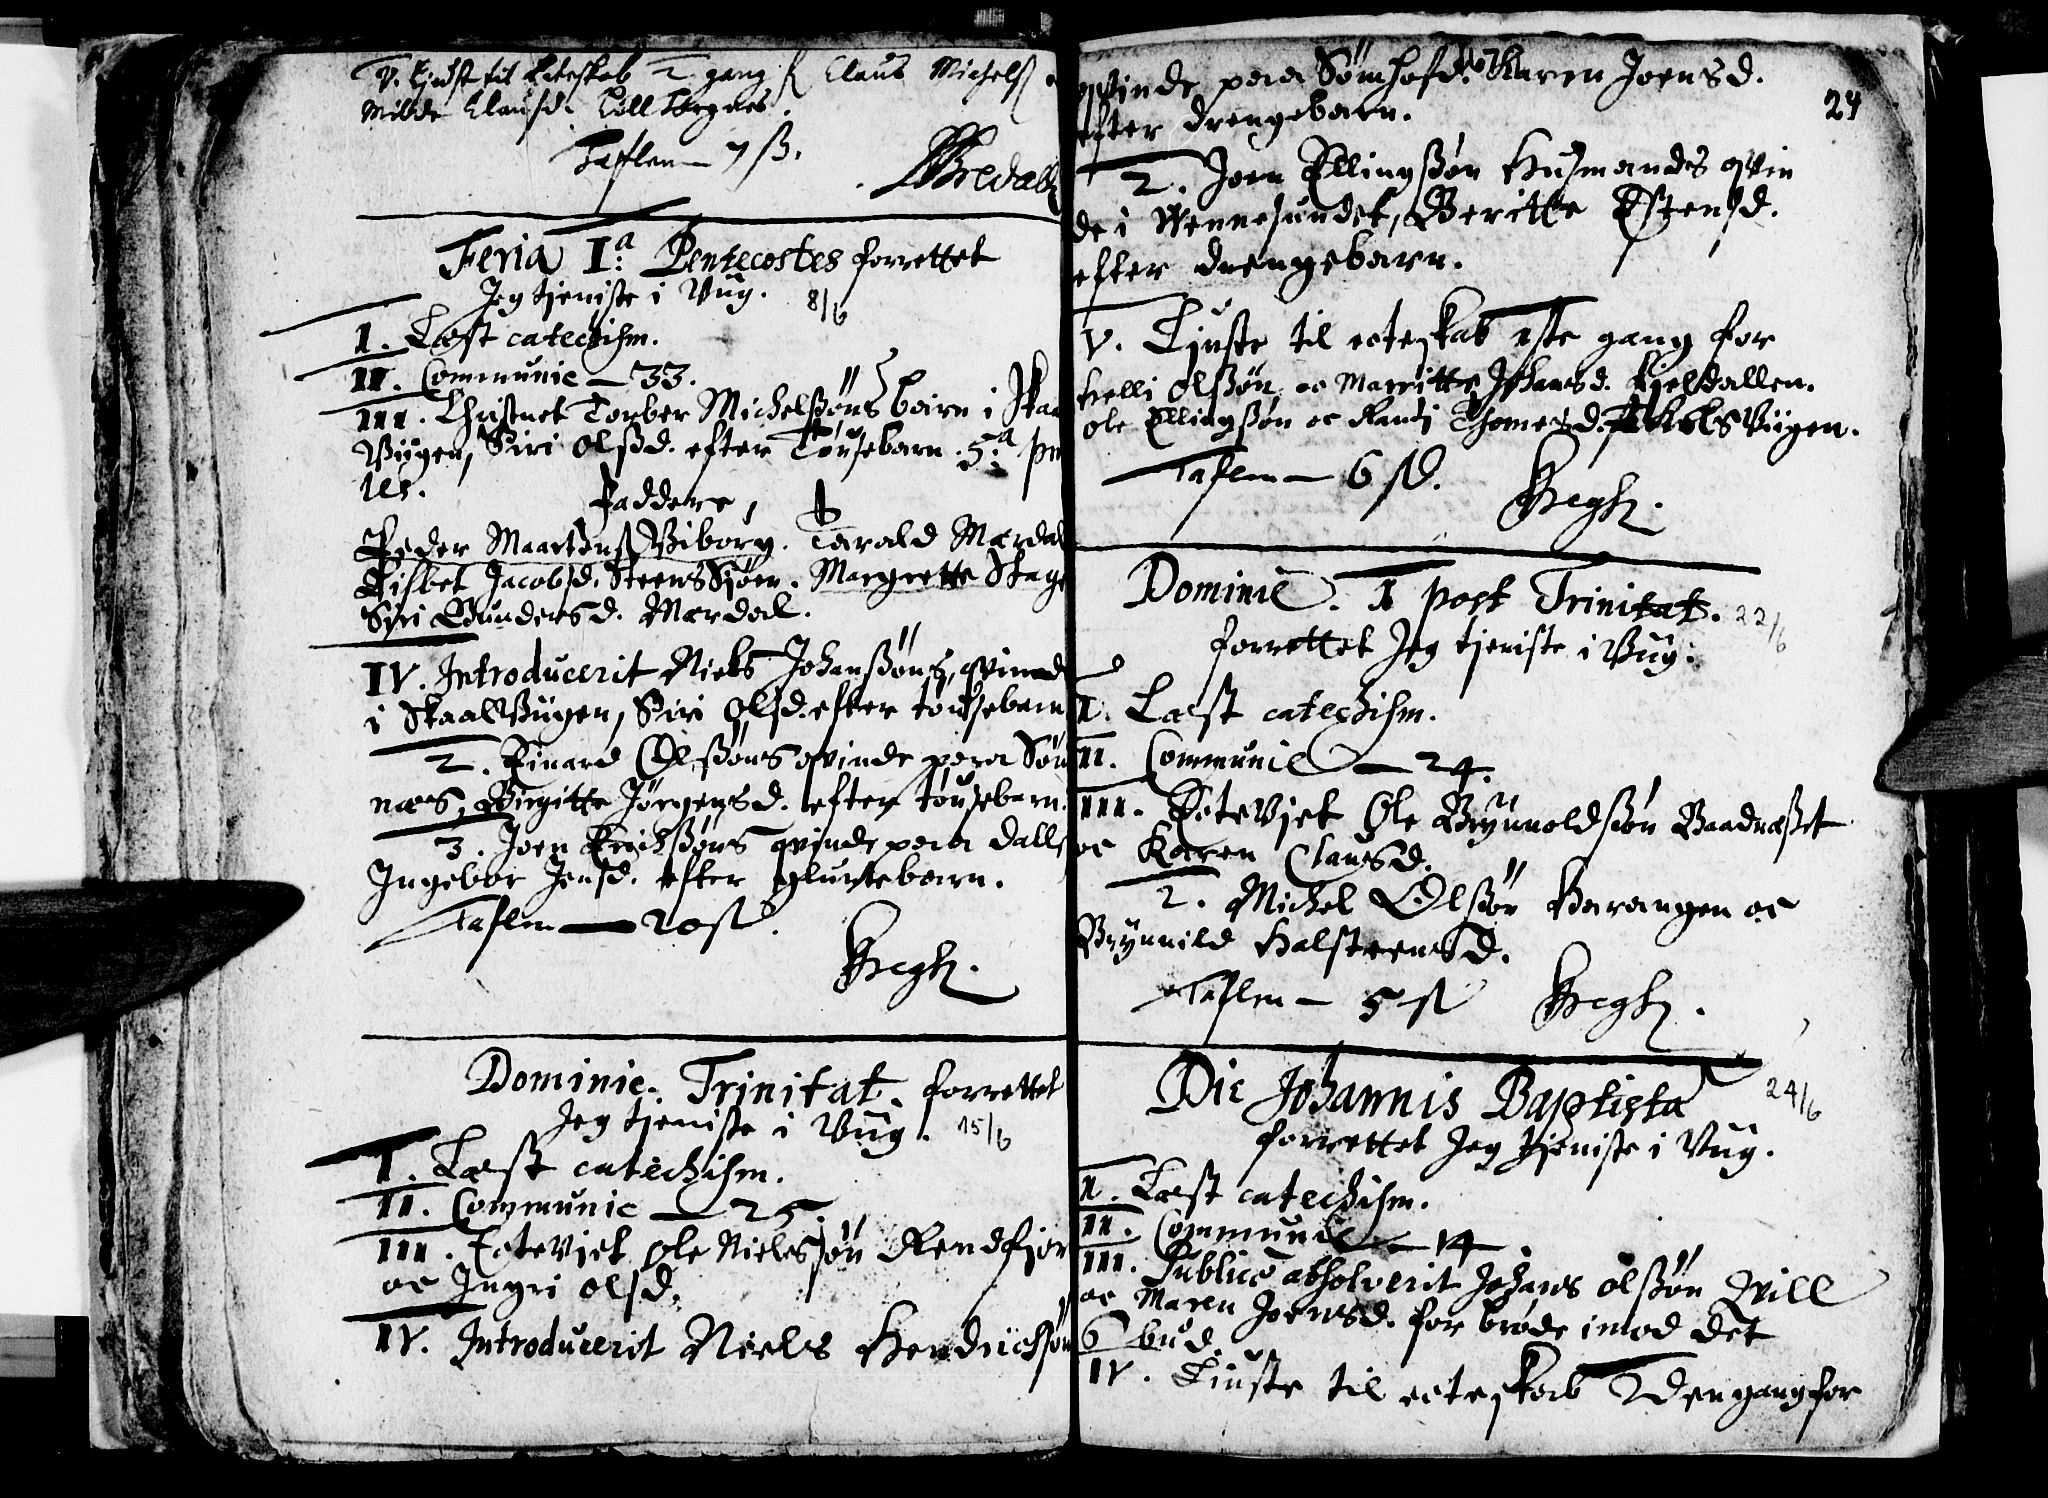 V. liust til Ecteskab 2 gang f Claus Michels
Milde Clausd.
Taflen — 7 ß.
Feria I.a Pentecostes forrettet
Jeg tieniste i Vug. 8/6
I. Læst catechism.
II. Communic — 33.
III. Christnet Torber Michelßøns barn i Skaa
Viigen, Siri Olßd. efter Tøusebarn. 5.a
Faddere,
Peder Viborg. Tarald Mærdal
Lisbet Jacobsd. Steensiøen. Margrette Stage
Siri Gundersd. Mærdal.
IV. Introducerit Niels Johanßøns qvinde
i SkaalViigen, Siri Olsd. efter tøusebarn
2. Einard Olßøns qvinde paa Søn
næs, Birgitte Jørgensd. efter tøusebarn.
3. Joen Erichßøns qvinde paa Dalls
Ingebor Jensd. efter gluttebarn.
Taflen — 20 ß.
Dominic. Trinitat. forrettet
Jeg tieniste i Vug. 15/6
I. Læst catechism.
II. Communic — 25
III. EcteViet Ole Nielssøn Rendfior
oc Ingri Olsd.
IV. Introducerit Niels Hendrichsøn
24
qvinde paa Sømhofd. Karen Joensd.
efter drengebarn.
2. Joen Ellingßøn Husmands qvin
de i Wennesundet, Beritte Estensd.
efter drengebarn.
V. Liuste til ecteskab 1ste gang for
Kelli Olßøn oc Marritte Johansd. Fieldallen.
Ole Ellingßøn oc Randi Thomesd. Viigen.
Taflen — 6 ß.
Dominic. I post Trinitat. 22/6
forrettet Jeg tieniste i Vug.
I. Læst catechism.
II. Communic — 24.
III. EcteViet Ole Brynnoldsøn Baadnæßet
oc Karen Clausd.
2. Michel Olßøn Varangen oc
Brynnild Halsteensd.
Taflen — 5 ß
Die Johannis Baptista 24/6
forrettet Jeg tieniste i Vug.
I. Læst catechism.
II. Communic — 14.
III. Publice absolverit Johans Olßøn Qvill
oc Maren Joensd. for brøde imod det
6 bud.
IV. Liuste til ecteskab 2den gang for